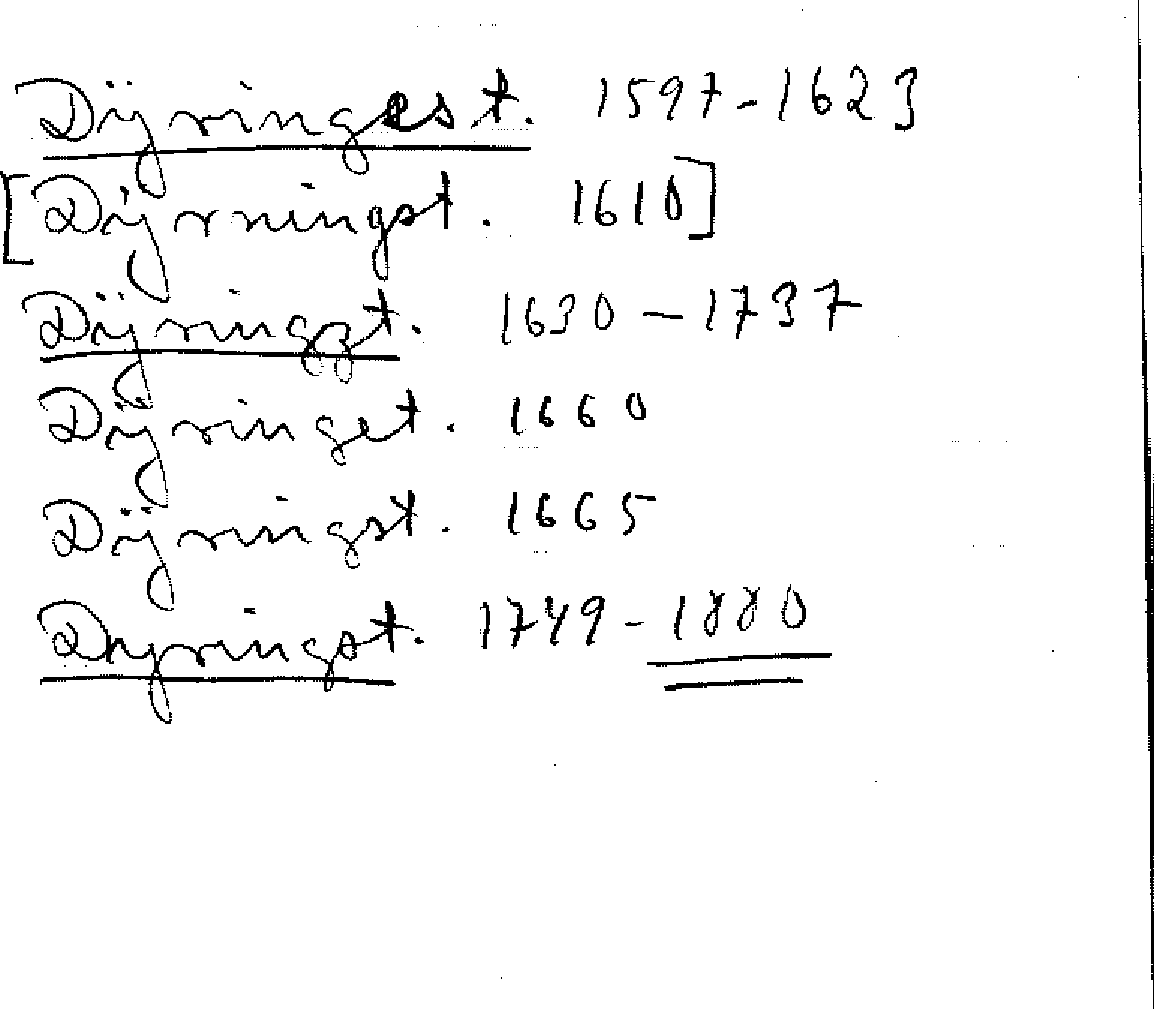 Dijringest. 1597-1623
[Dijrningst. 1610]
Dijringzt. 1630-1737
Dijringet. 1660
Dijringst. 1665
Dyringst. 1749-1880